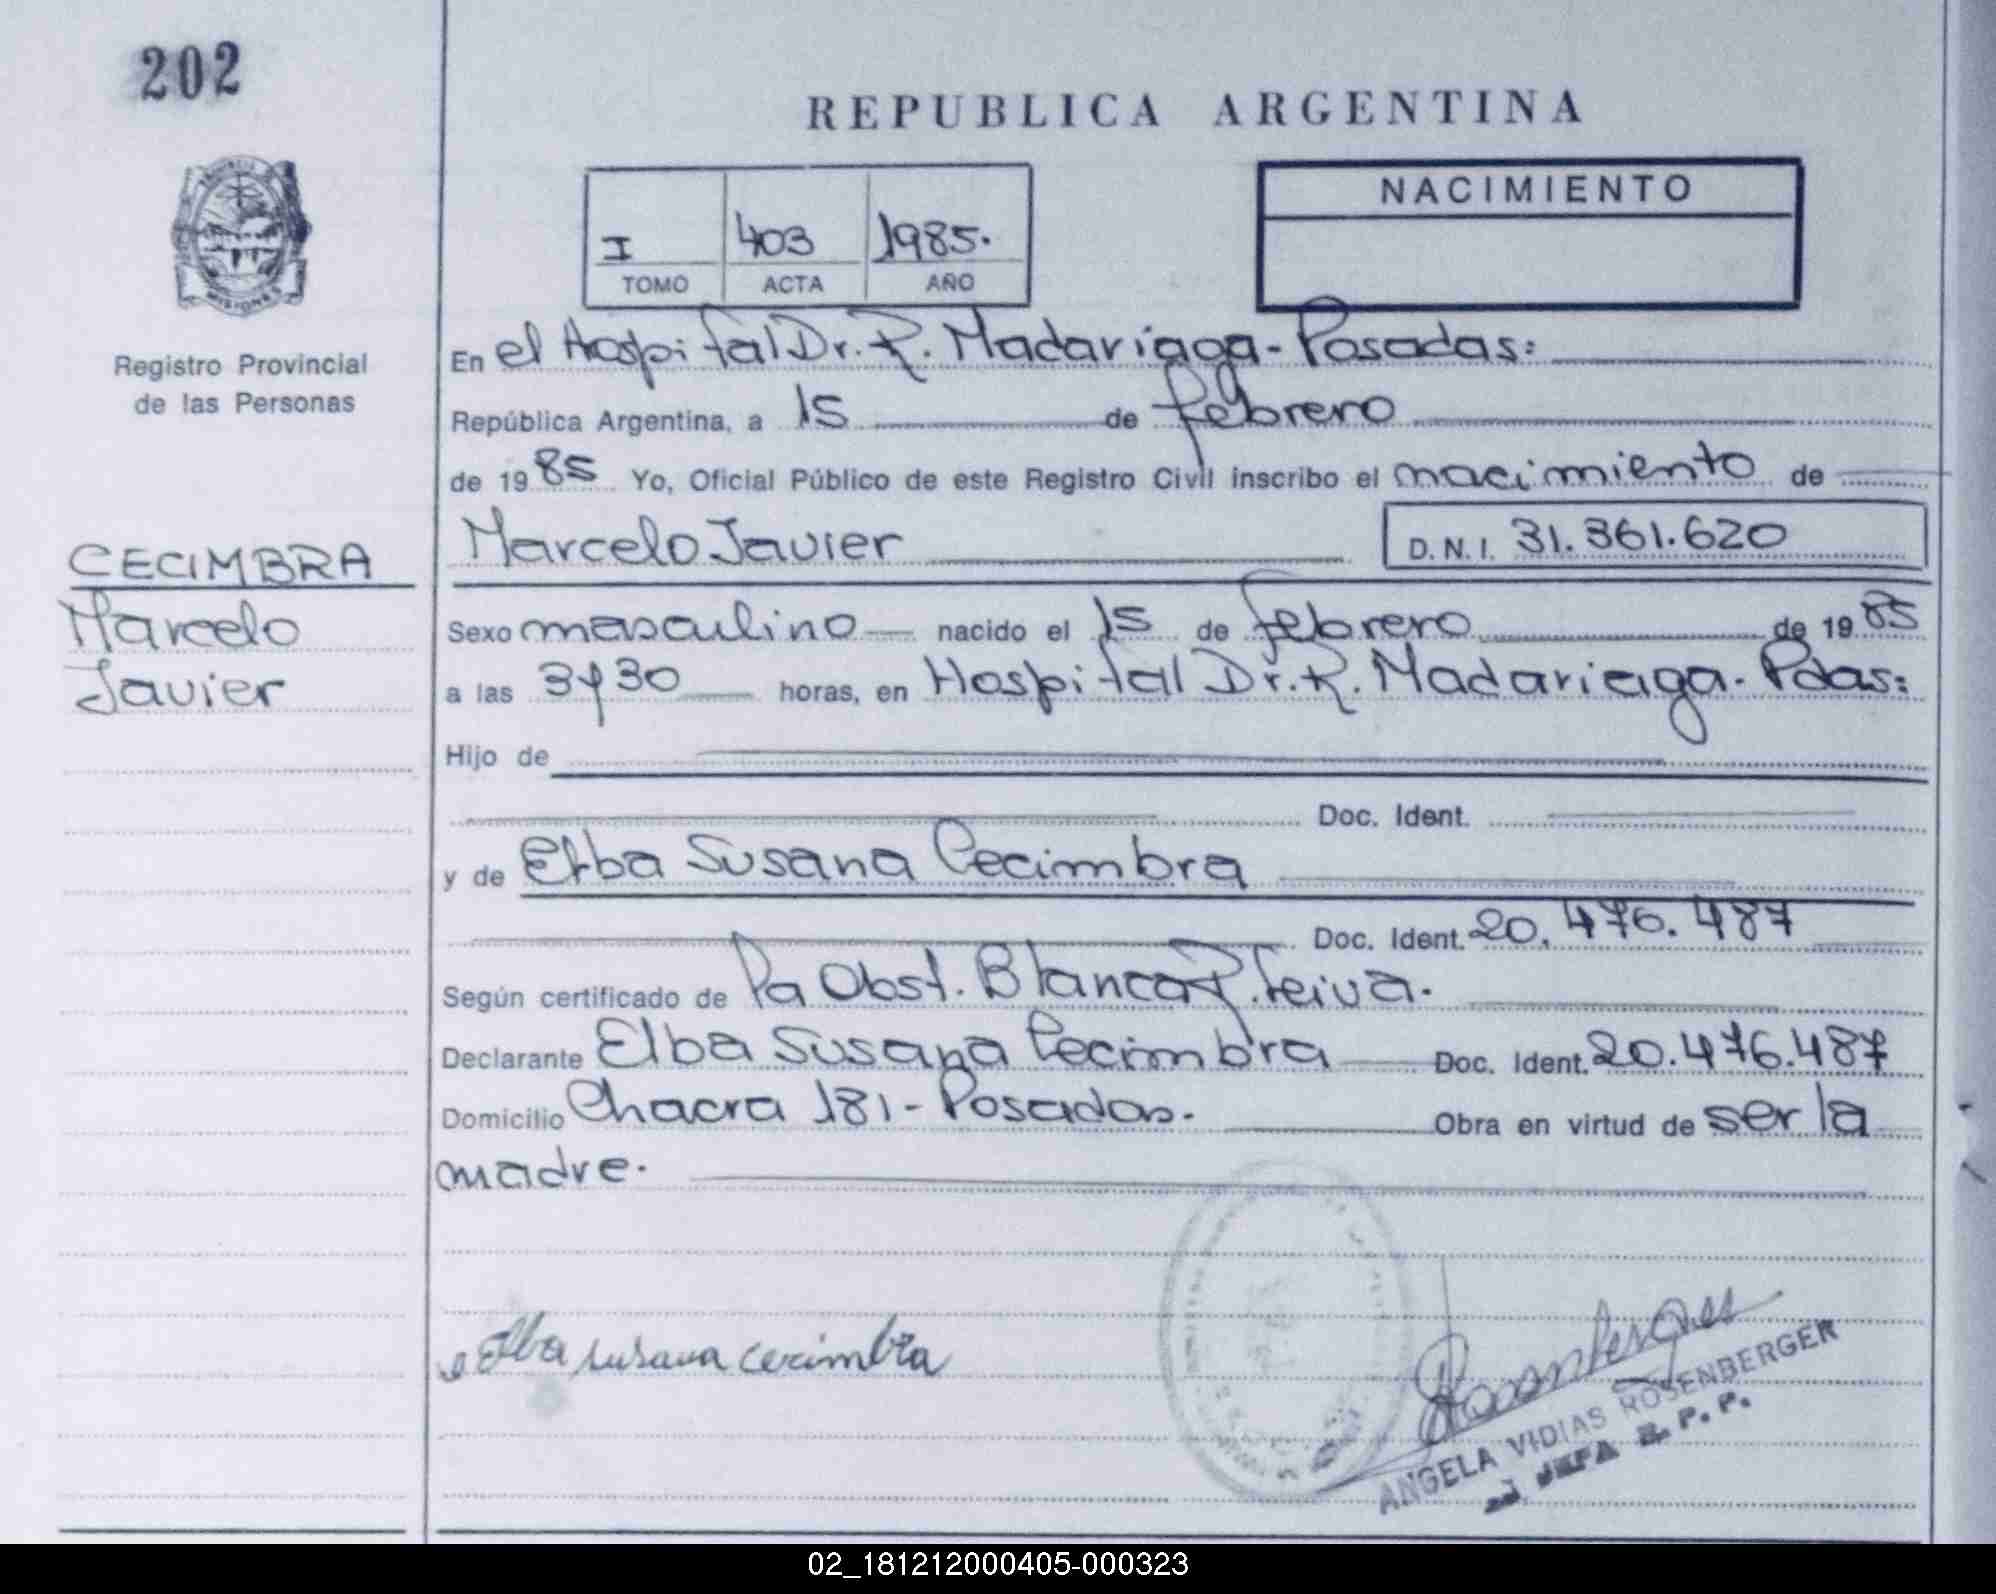 202
REPUBLICA ARGENTINA
MISIONES
Registro Provincial
de las Personas
I 403 1985.
TOMO ACTA AÑO
NACIMIENTO
En el Hospital Dr. R. Madariaga - Posadas:
República Argentina, a 15 de febrero
de 1985 Yo, Oficial Público de este Registro Civil inscribo el nacimiento de
CECIMBRA
Marcelo
Javier
Marcelo Javier D.N.I. 31.361.620
Sexo masculino nacido el 15 de febrero de 1985
a las 3y30 horas, en Hospital Dr. R. Madariaga. Pdas:
Hijo de
Doc. Ident.
y de Elba Susana Cecimbra
Doc. Ident. 20.476.487
Según certificado de Pa Obst. Blanca R. Leiva.
Declarante Elba Susana Cecimbra Doc. Ident. 20.476.487
Domicilio Chacra 181 - Posadas. Obra en virtud de ser la
madre.
Elba susana cecimbra
Rosenberger
ANGELA VIDIAS ROSENBERGER
JEFA R. P. P.
02_181212000405-000323